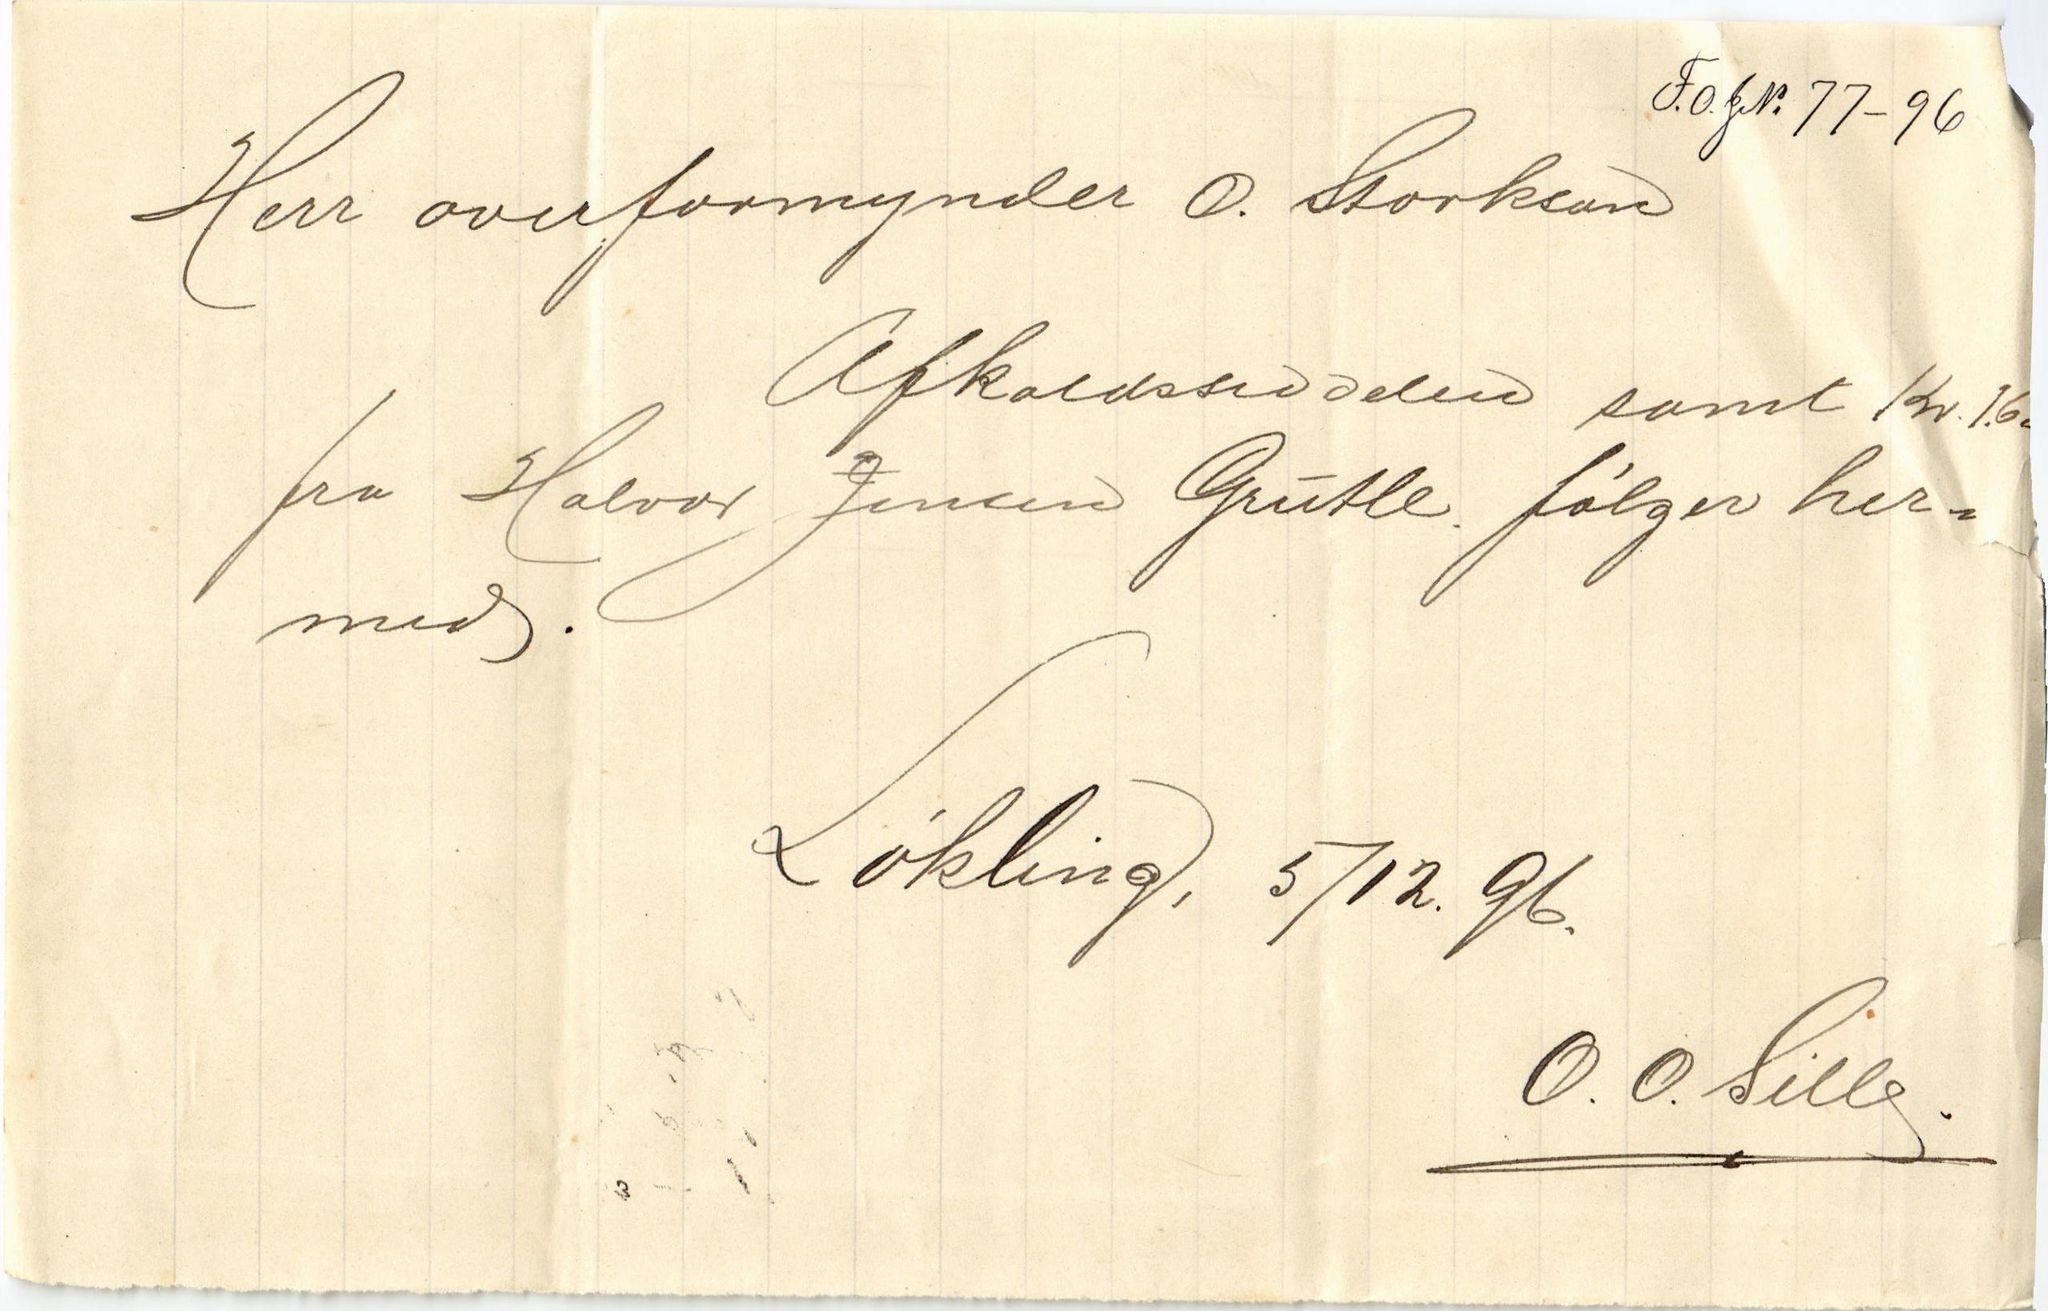 F.O. J.N. 77-96
Herr overformynder O. Storksen
Afkaldsseddelen samt Kr. 1.60
fra Halvor Jensen Grutle følger her-
med.
Løkling, 5/12. 96.
O. O. Lilleg.